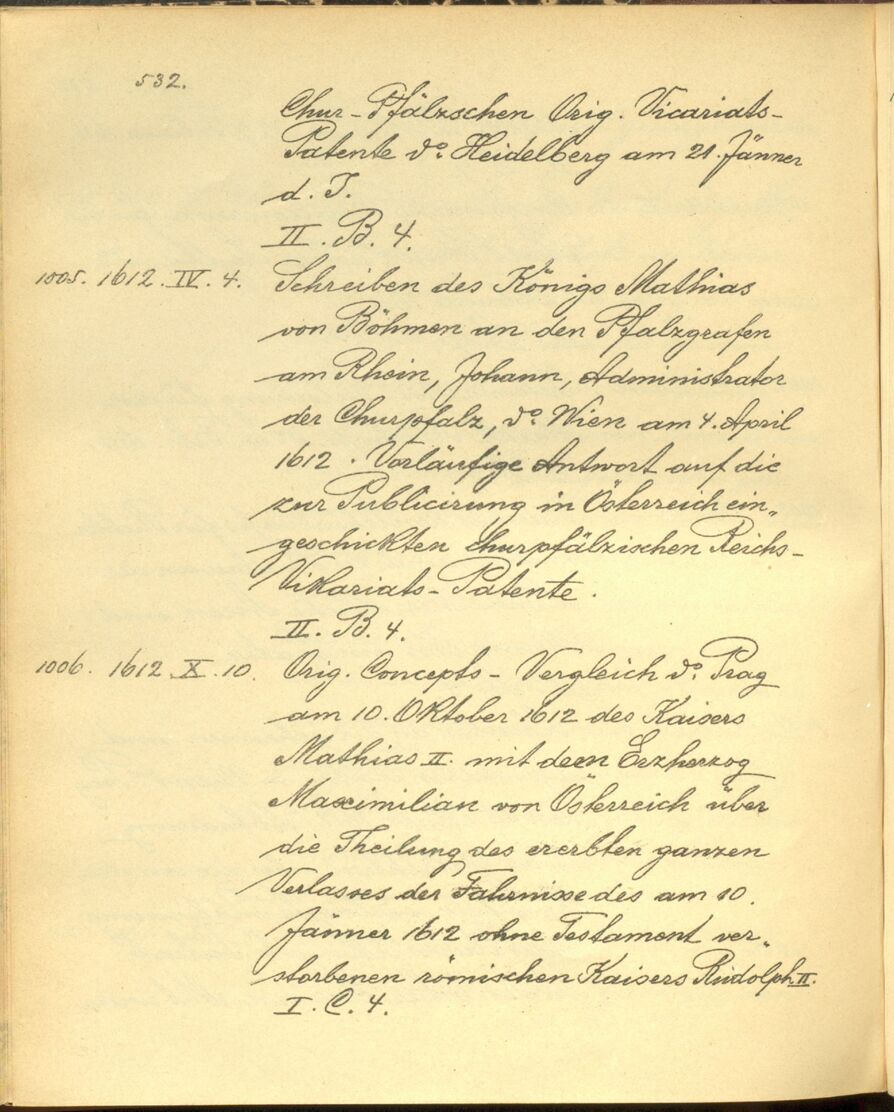 532.
Chur-Pfälzschen Orig. Vicariats-
Patente do. Heidelberg am 21. Jänner
d. J.
II. B. 4.
1005. 1612. IV. 4. Schreiben des Königs Mathias
von Böhmen an den Pfalzgrafen
am Rhein, Johann, Administrator
der Churpfalz, do. Wien am 4. April
1612. Vorläufige Antwort auf die
zur Publicirung in Österreich ein„
geschickten churpfälzischen Reichs-
Vikariats-Patente.
II. B. 4.
1006. 1612. X. 10. Orig. Concepts-Vergleich do. Prag
am 10. Oktober 1612 des Kaisers
Mathias II. mit dem Erzherzog
Maximilian von Österreich über
die Theilung des ererbten ganzen
Verlasses der Fahrnisse des am 10.
Jänner 1612 ohne Testament ver„
storbenen römischen Kaisers Rudolph II.
I. C. 4.